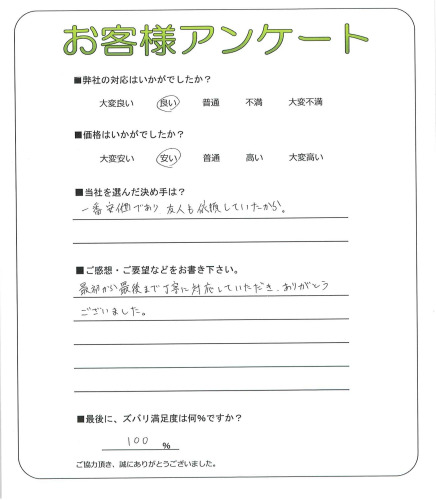 お客様アンケート
■弊社の対応はいかがでしたか？
大変良い 良い 普通 不満 大変不満
■価格はいかがでしたか？
大変安い 安い 普通 高い 大変高い
■当社を選んだ決め手は？
一番安価であり、友人も依頼していたから。
■ご感想・ご要望などをお書き下さい。
最初から最後まで丁寧に対応していただき、ありがとう
ございました。
■最後に、ズバリ満足度は何％ですか？
100 ％
ご協力頂き、誠にありがとうございました。